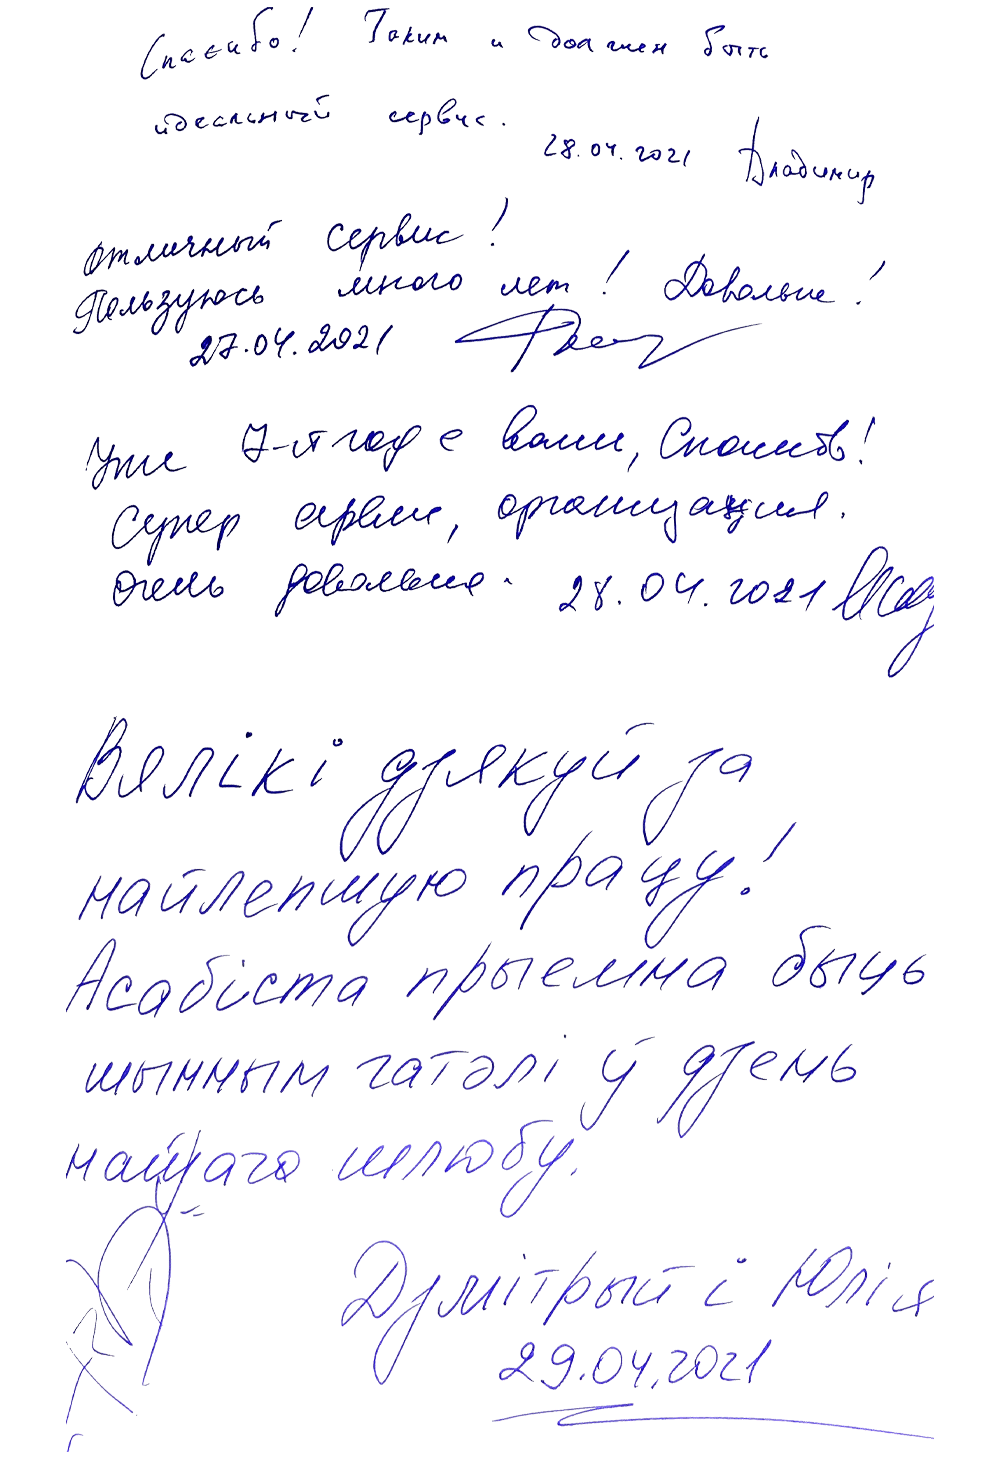 Спасибо! Таким и должен быть
идеальный сервис.
28.04.2021 Владимир
Отличный сервис!
Пользуюсь много лет! Довольна!
27.04.2021
Уже 7-й год с вами, Спасибо!
Супер сервис, организация.
Очень довольна. 28.04.2021
Вялікі дзякуй за
найлепшую працу!
Асабіста прыемна быць
шынным гатэлі ў дзень
нашага шлюбу.
Дзмітрый і Юлія
29.04.2021